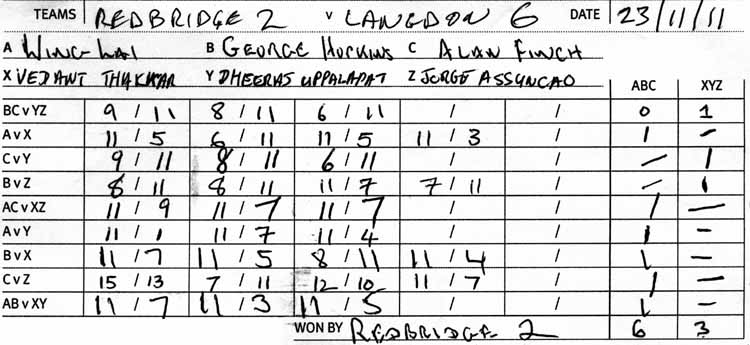 TEAMS REDBRIDGE 2 V LANGDON 6 DATE 23/11/11
A WING-LAI B GEORGE HOCKINS C ALAN FINCH
X VEDANT THAKKAR Y DHEERAJ UPPALAPAT Z JORGE ASSUNCAO ABC XYZ
BC v YZ 9 / 11 8 / 11 6 / 11 / / 0 1
A v X 11 / 5 6 / 11 11 / 5 11 / 3 / 1 –
C v Y 9 / 11 8 / 11 6 / 11 / / – 1
B v Z 8 / 11 8 / 11 11 / 7 7 / 11 / – 1
AC v XZ 11 / 9 11 / 7 11 / 7 / / 1 –
A v Y 11 / 1 11 / 7 11 / 4 / / 1 –
B v X 11 / 7 11 / 5 8 / 11 11 / 4 / 1 –
C v Z 15 / 13 7 / 11 12 / 10 11 / 7 / 1 –
AB v XY 11 / 7 11 / 3 11 / 5 / / 1 –
WON BY REDBRIDGE 2 6 3